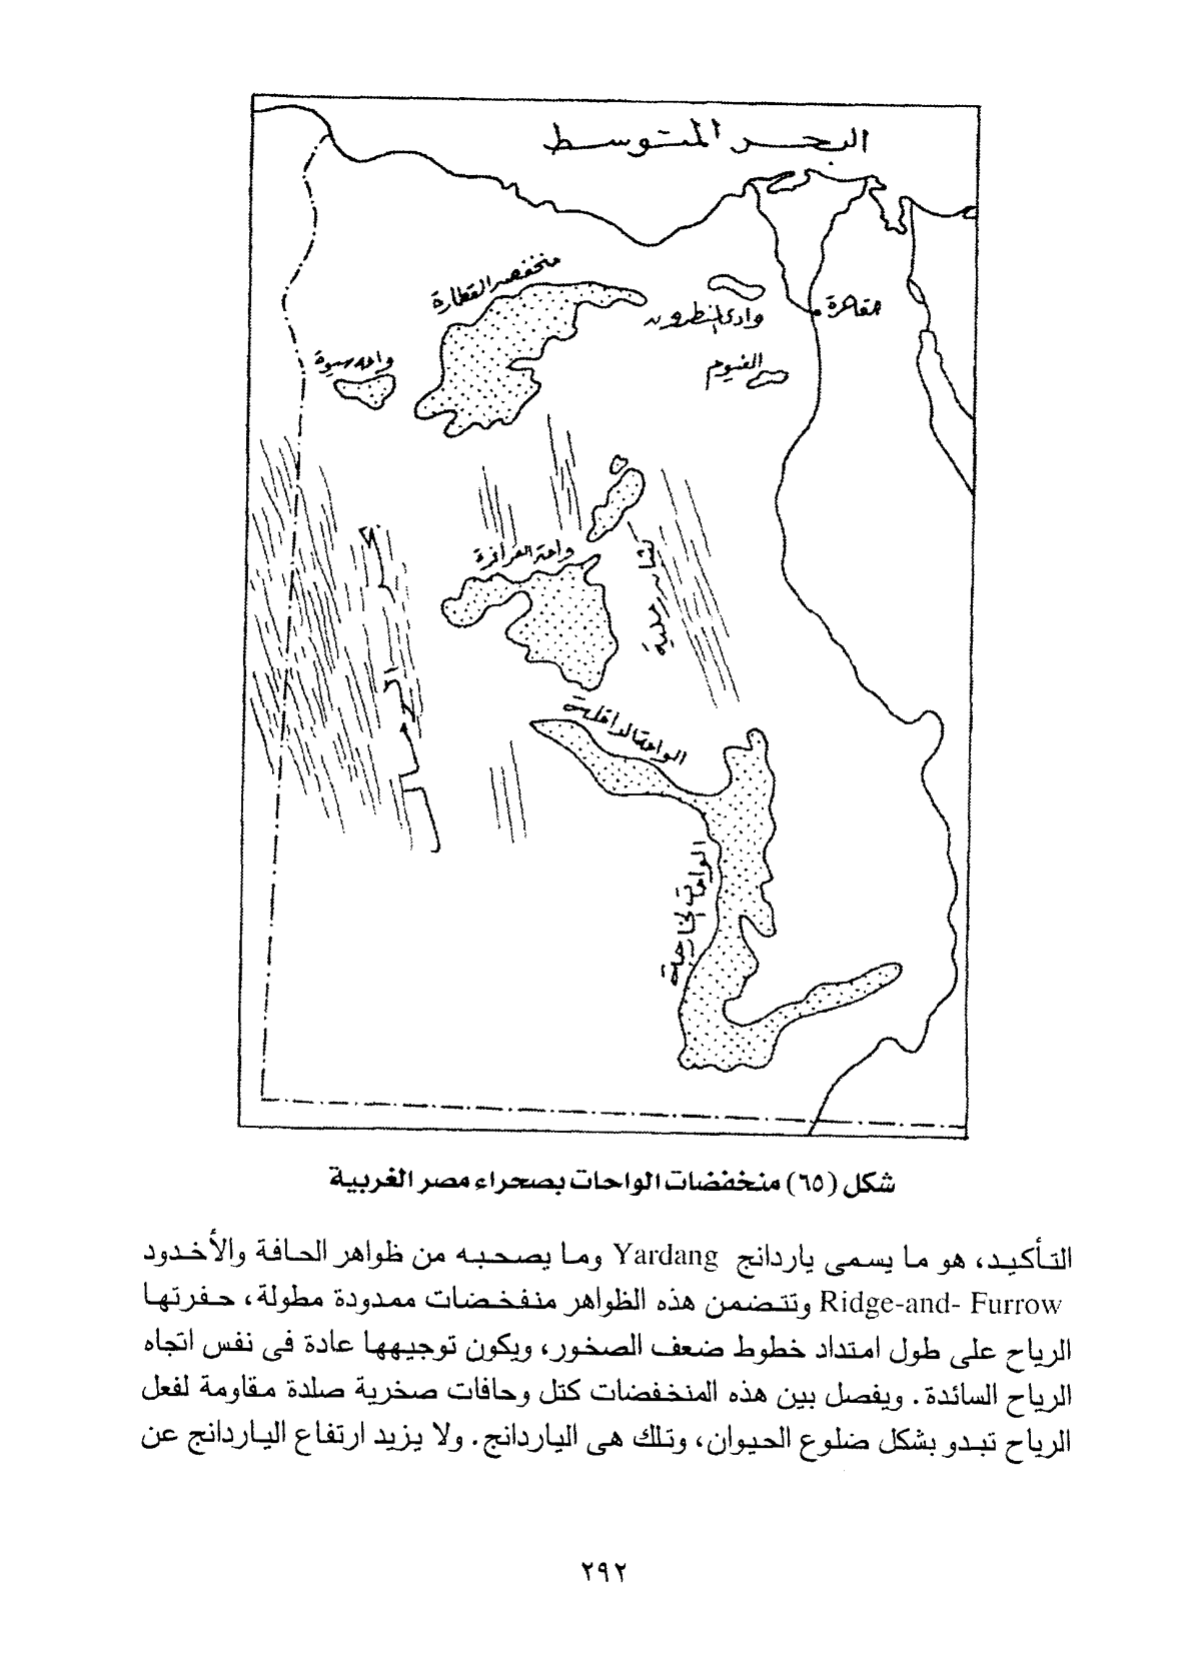 البحر المتوسط
منخفض القطارة
وادى النطرون
القاهرة
واحه سيوة
الفيوم
واحة الفرافرة
الواحة الداخلية
الواحة الخارجية
شكل (٦٥) منخفضات الواحات بصحراء مصر الغربية
التأكيد، هو ما يسمى ياردانج Yardang وما يصحبه من ظواهر الحافة والأخدود
Ridge-and- Furrow وتتضمن هذه الظواهر منفخضات ممدودة مطولة، حفرتها
الرياح على طول امتداد خطوط ضعف الصخور، ويكون توجيهها عادة فى نفس اتجاه
الرياح السائدة. ويفصل بين هذه المنخفضات كتل وحافات صخرية صلدة مقاومة لفعل
الرياح تبدو بشكل ضلوع الحيوان، وتلك هى الياردانج. ولا يزيد ارتفاع الياردانج عن
٢٩٢